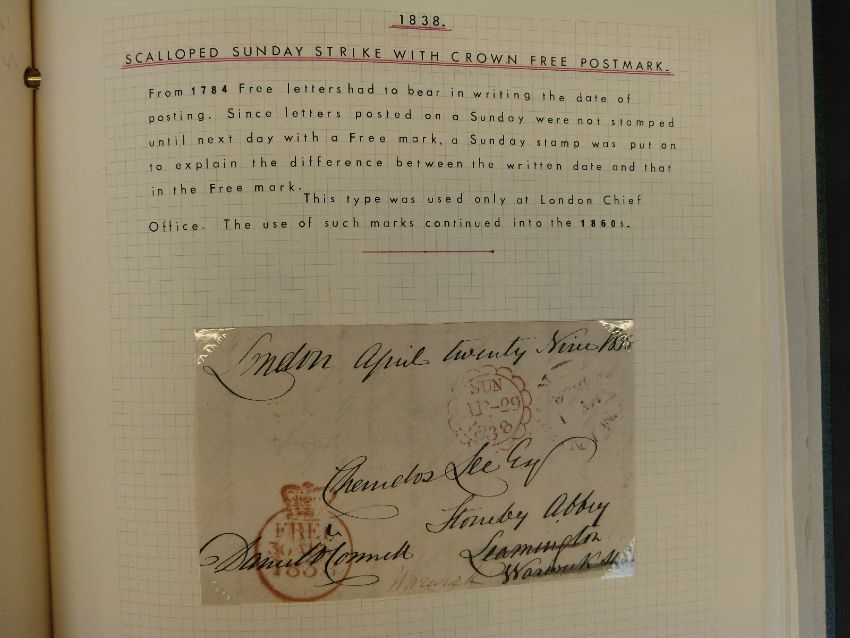 1838.
SCALLOPED SUNDAY STRIKE WITH CROWN FREE POSTMARK.
From 1784 Free letters had to bear in writing the date of
posting. Since letters posted on a Sunday were not stamped
until next day with a Free mark, a Sunday stamp was put on
to explain the difference between the written date and that
in the Free mark.
This type was used only at London Chief
Office. The use of such marks continued into the 1860s.
London April twenty Nine 1838
SUN
AP-29
1838
Chandos Lee Esq
Stoneley Abbey
Leamington
Warwick
FREE
30
183
Daniel O'Connell
Warwick